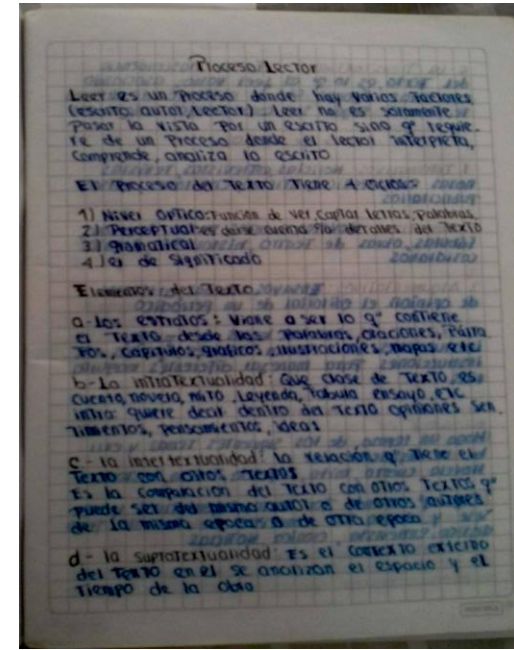 Proceso Lector
Leer es un Proceso donde hay varios factores
(escrito autor Lector) Leer no es solamente
Pasar la vista Por un escrito sino q' requie-
re de un Proceso donde el lector interpreta,
Comprende, analiza lo escrito
El Proceso del Texto Tiene 4 ciclos
1) Nivel Optico: Función de ver, Captar letras, palabras,
2) Perceptual: es darse cuenta detalles del texto
3) gramatical
4) es de Significado
Elementos del Texto
a- Los estratos: Viene a ser lo q' contiene
el Texto desde las Palabras, oraciones, Párra
Fos, Capitulos, graficos, ilustraciones, mapas etc
b- La intratextualidad: Que clase de Texto es
Cuento, novela, mito, Leyenda, fabula ensayo, etc
intra: quiere decir dentro del Texto opiniones Sen
Timientos, Pensamientos, ideas
C- la intertextualidad: la relación q' Tiene el
Texto con otros Textos
Es la Comparación del Texto con otros Textos q'
Puede ser del mismo autor o de otros autores
de la misma epoca o de otra epoca
d- la supratextualidad: Es el Contexto externo
del Texto en el se analizan el espacio y el
Tiempo de la Obra